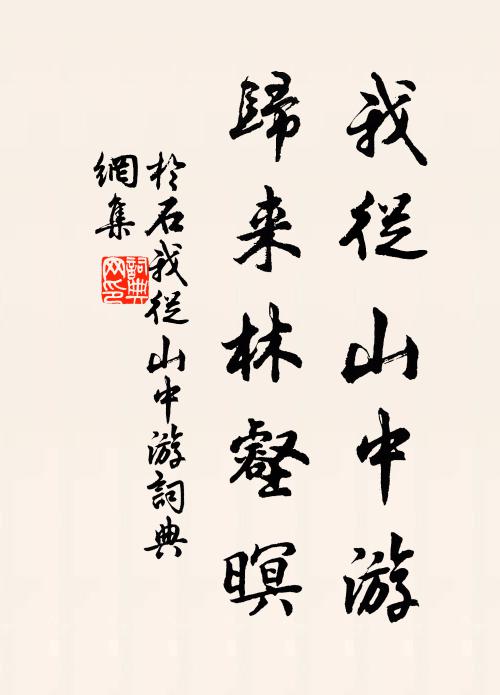 我從山中游
歸来林壑暝
於石我從山中游詞典
網集
詞典网印